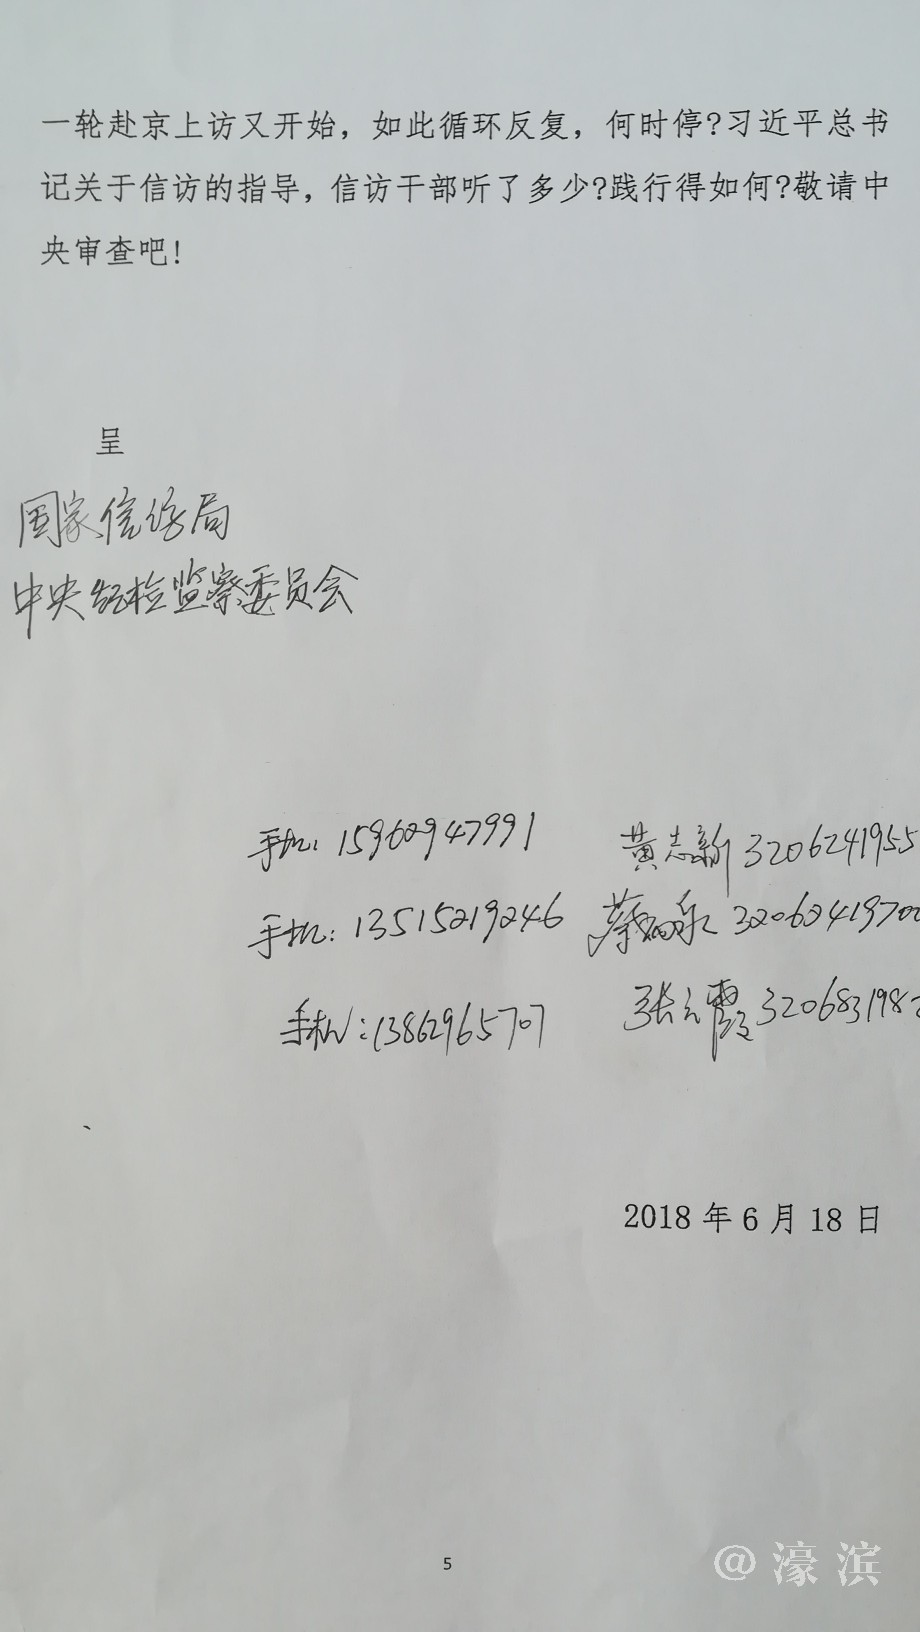 一轮赴京上访又开始，如此循环反复，何时停?习近平总书
记关于信访的指导，信访干部听了多少?践行得如何?敬请中
央审查吧!
呈
国家信访局
中央纪检监察委员会
手机：15962947991 黄志新 3206241955
手机：13515219246 蔡 32062419700
手机：13862965707 张 霞 320683198
2018 年 6 月 18 日
5
@濠滨